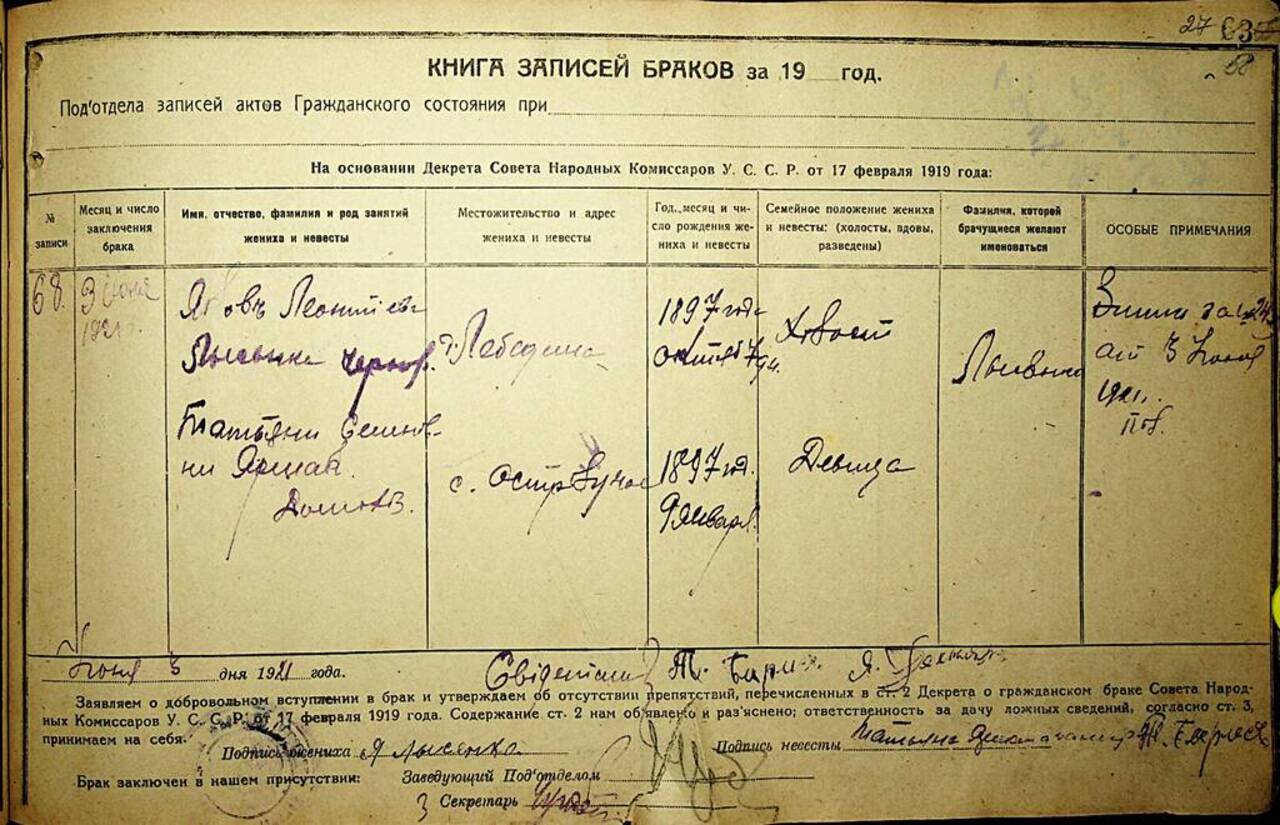 27 63
58
КНИГА ЗАПИСЕЙ БРАКОВ за 19 год.
Под'отдела записей актов Гражданского состояния при
На основании Декрета Совета Народных Комиссаров У. С. С. Р. от 17 февраля 1919 года:
№ записи
Месяц и число заключения брака
Имя, отчество, фамилия и род занятий жениха и невесты
Местожительство и адрес жениха и невесты
Год, месяц и число рождения жениха и невесты
Семейное положение жениха и невесты: (холосты, вдовы, разведены)
Фамилия, которой брачущиеся желают именоваться
ОСОБЫЕ ПРИМЕЧАНИЯ
68.
3 июня
1921 г.
Яковъ Леонтіев
Лысенко
г. Лебедина
1897 года
Холост
Лысенко
от 3 Июня
1921 г.
Татьяни Семенов-
ни
с. Остр
1897 год.
9 января
Девица
Июня 3 дня 1921 года.
Заявляем о добровольном вступлении в брак и утверждаем об отсутствии препятствий, перечисленных в ст. 2 Декрета о гражданском браке Совета Народ-
ных Комиссаров У. С. С. Р. от 17 февраля 1919 года. Содержание ст. 2 нам об'явлено и раз'яснено; ответственность за дачу ложных сведений, согласно ст. 3,
принимаем на себя.
Подпись жениха Я Лысенко Подпись невесты Татьяна
Брак заключен в нашем присутствии: Заведующий Под'отделом
Секретарь